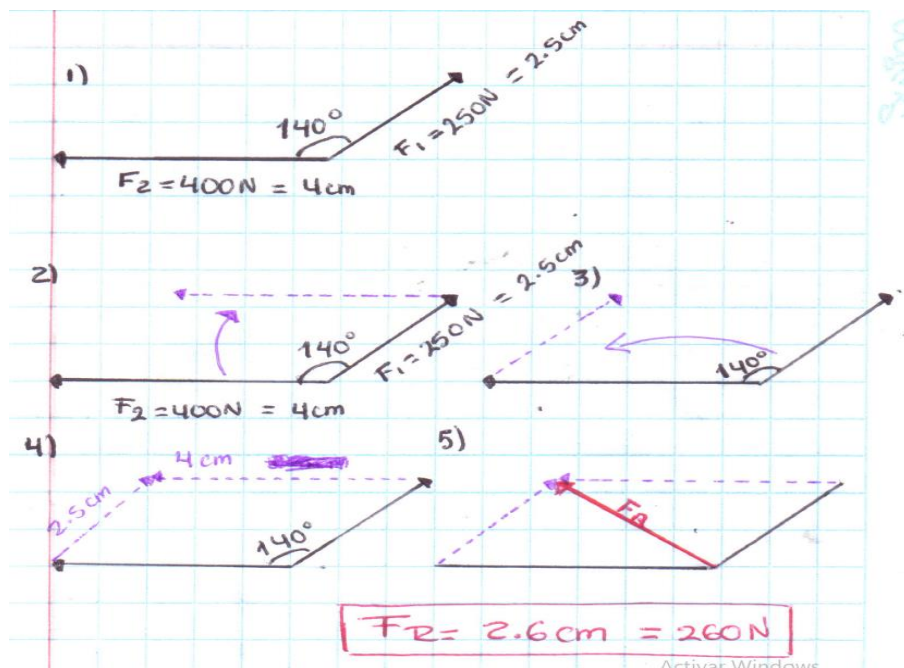 1)
140°
F1 = 250N = 2.5cm
F2 = 400N = 4cm
2)
140°
F1 = 250N = 2.5cm
F2 = 400N = 4cm
3)
140°
4)
4cm
2.5cm
140°
5)
FR
FR = 2.6cm = 260N
Activar Windows